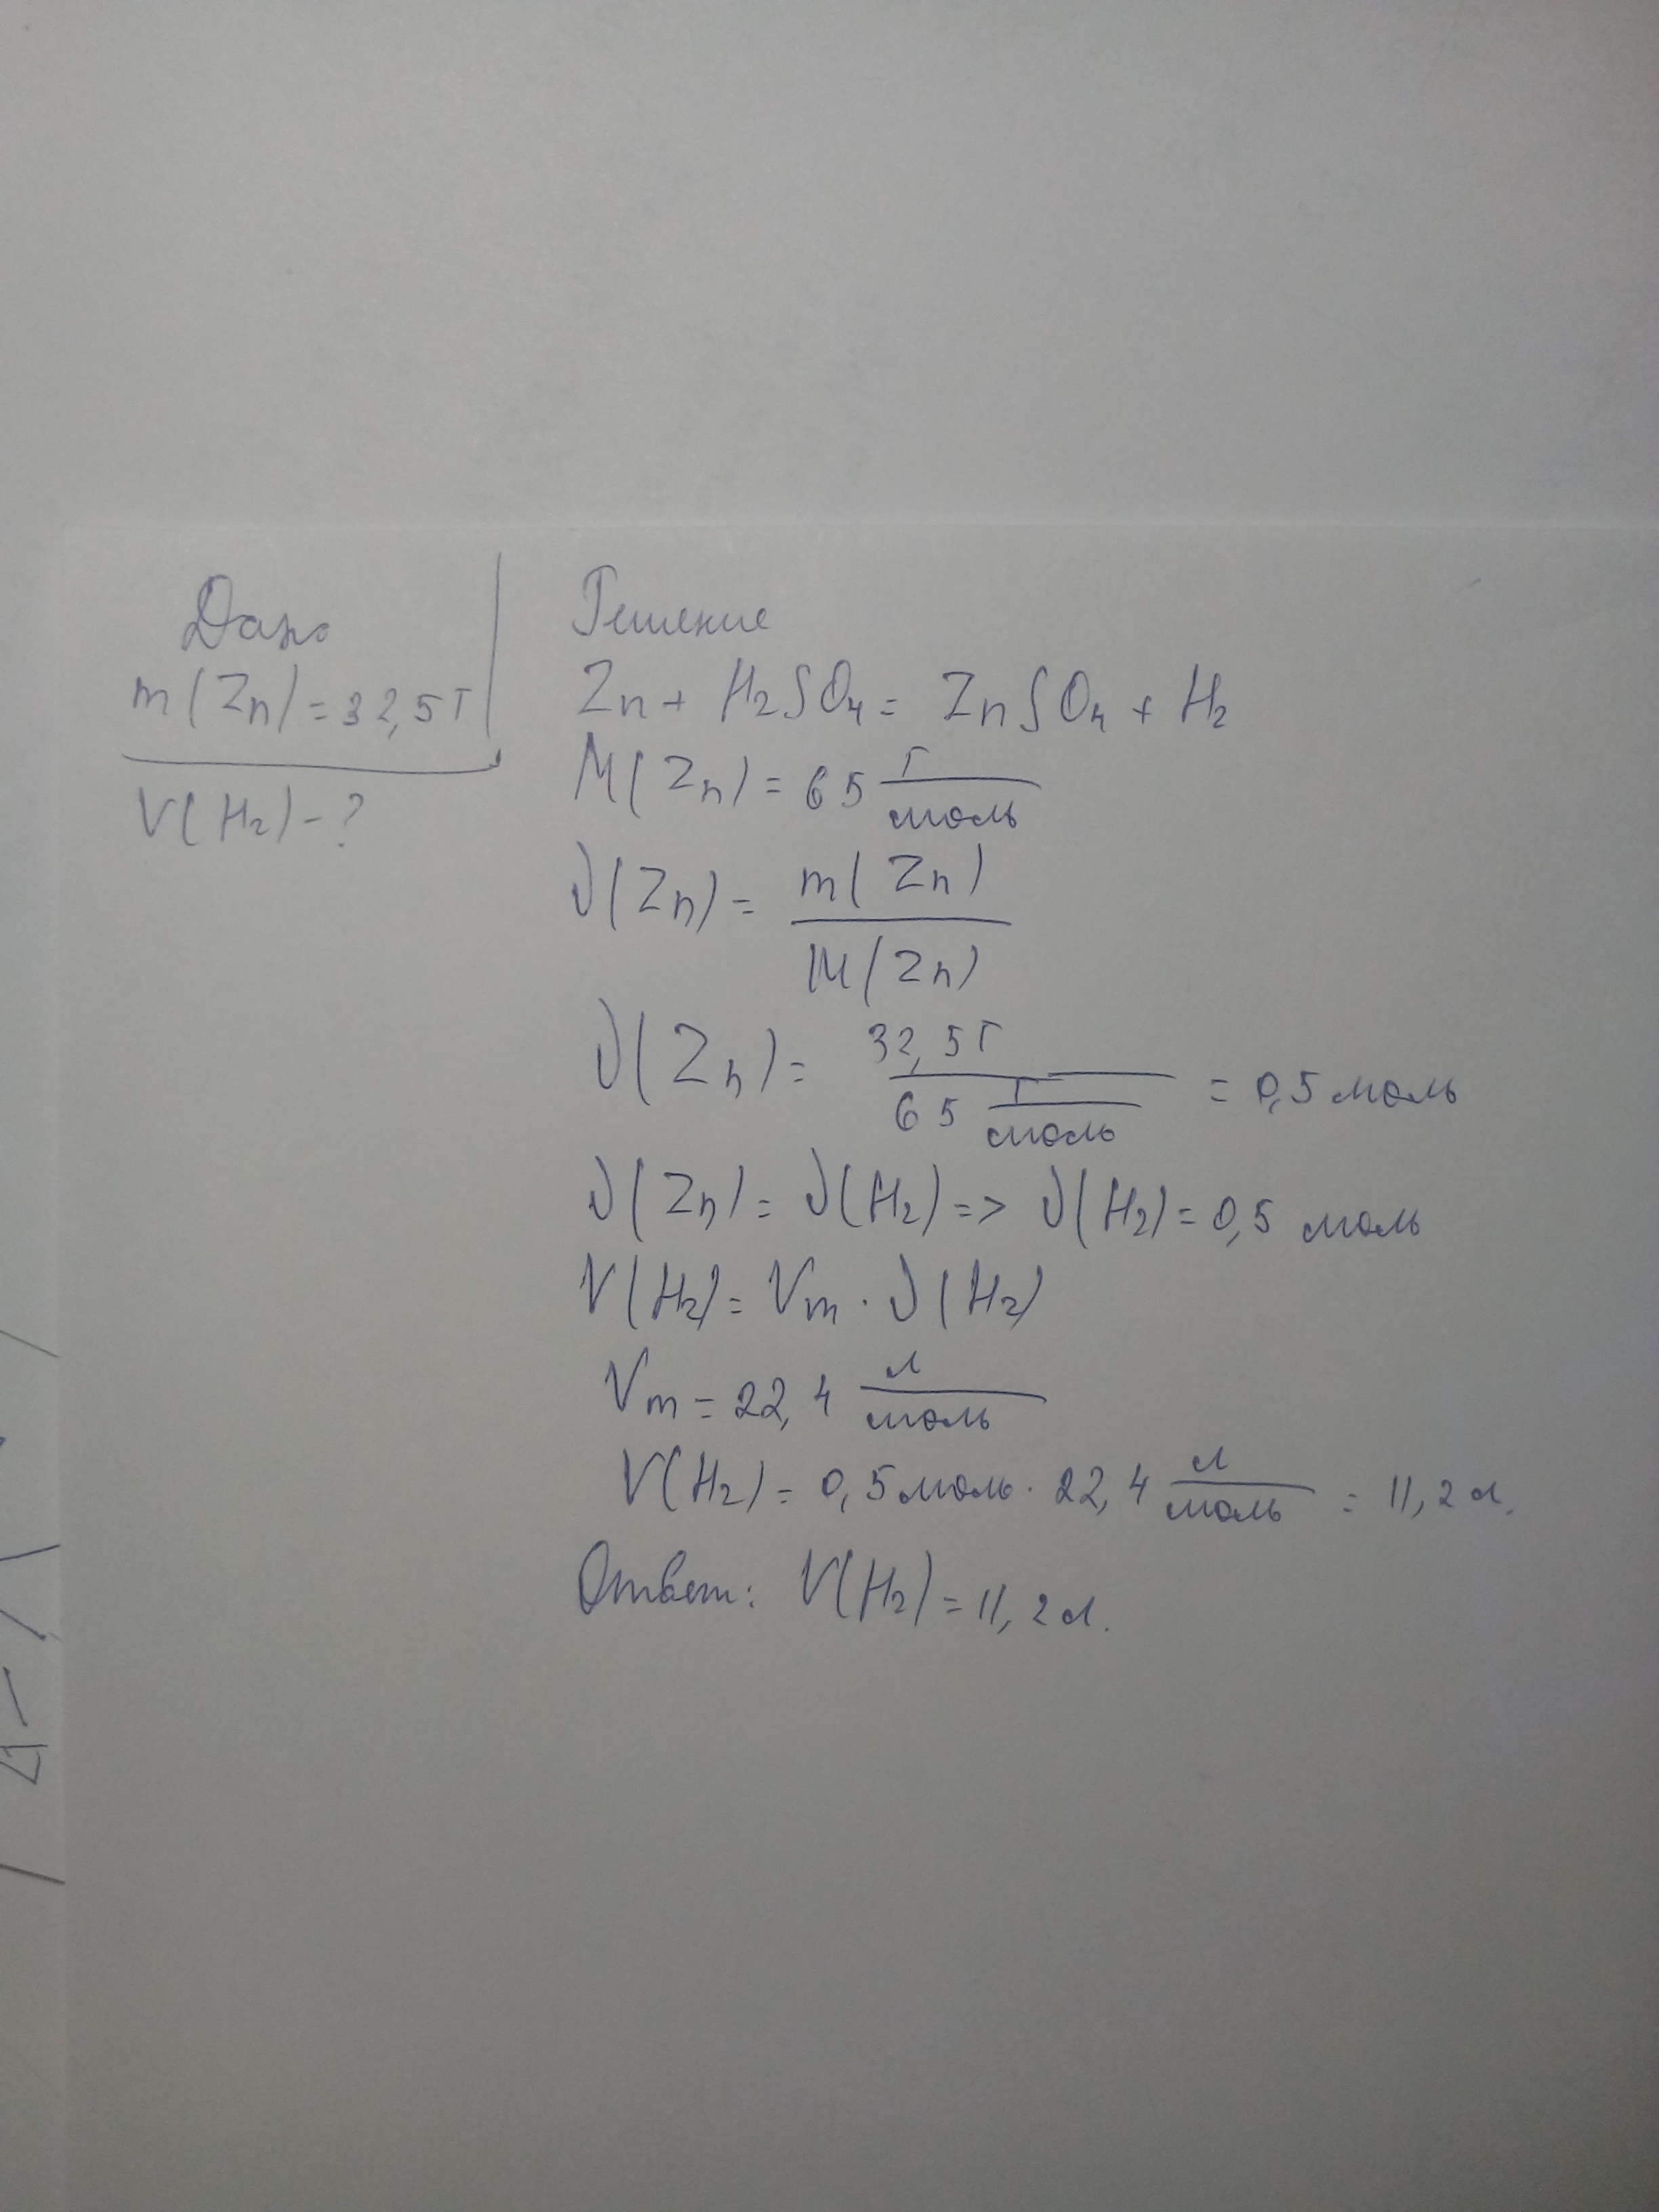 Дано
m(Zn)=32,5г
V(H₂)-?
Решение
Zn + H₂SO₄ = ZnSO₄ + H₂
M(Zn) = 65 г/моль
ν(Zn) = m(Zn)/M(Zn)
ν(Zn) = 32,5г/65 г/моль = 0,5 моль
ν(Zn) = ν(H₂) => ν(H₂) = 0,5 моль
V(H₂) = Vm · ν(H₂)
Vm = 22,4 л/моль
V(H₂) = 0,5 моль · 22,4 л/моль = 11,2 л.
Ответ: V(H₂) = 11,2 л.